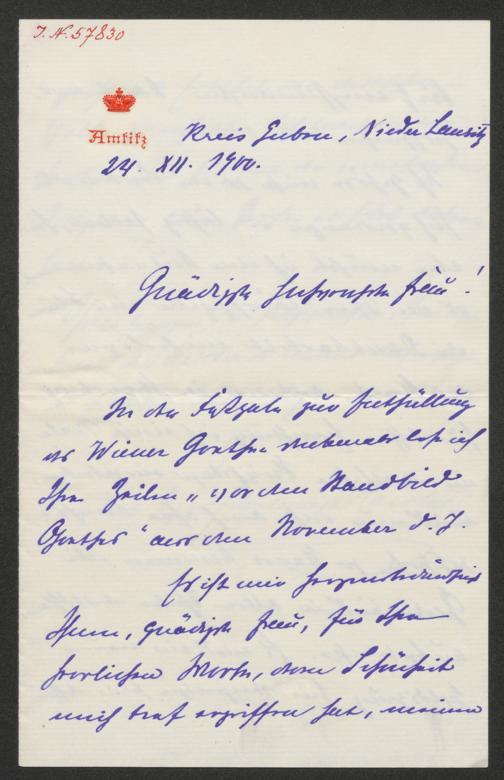 I. N. 57830
Amtitz
Kreis Guben, Nieder Lausitz
24. XII. 1900.
Gnädigste hochverehrte Frau!
In der Festgabe zur Enthüllung
des Wiener Goethe-Denkmales lese ich
Ihre Zeilen „vor dem Standbild
Goethes" aus dem November d. J.
Es ist mir Herzensbedürfnis
Ihnen, gnädigste Frau, für Ihre
herrlichen Worte, deren Schönheit
mich tief ergriffen hat, meinen